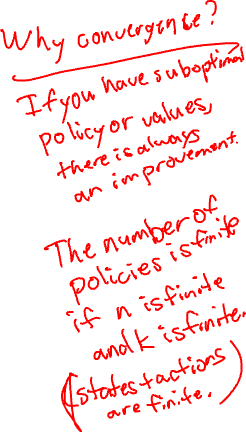 Why convergence?
If you have suboptimal
policy or values,
there is always
an improvement.
The number of
policies is finite
if n is finite
and k is finite.
(states + actions
are finite.)